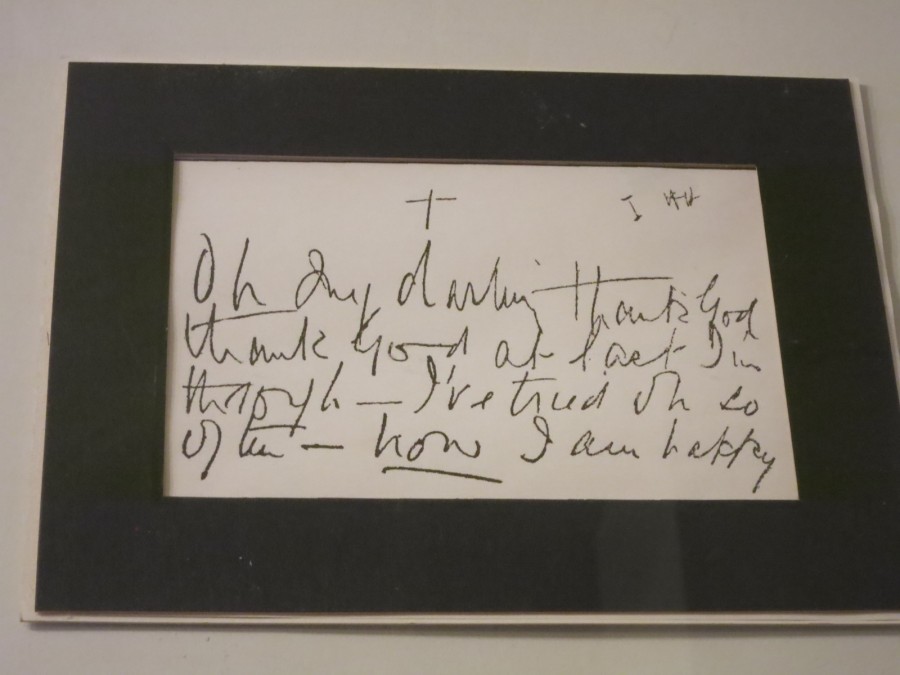 +
I
Oh my darling thank God
thank God at last I'm
through — I've tried Oh so
often — now I am happy